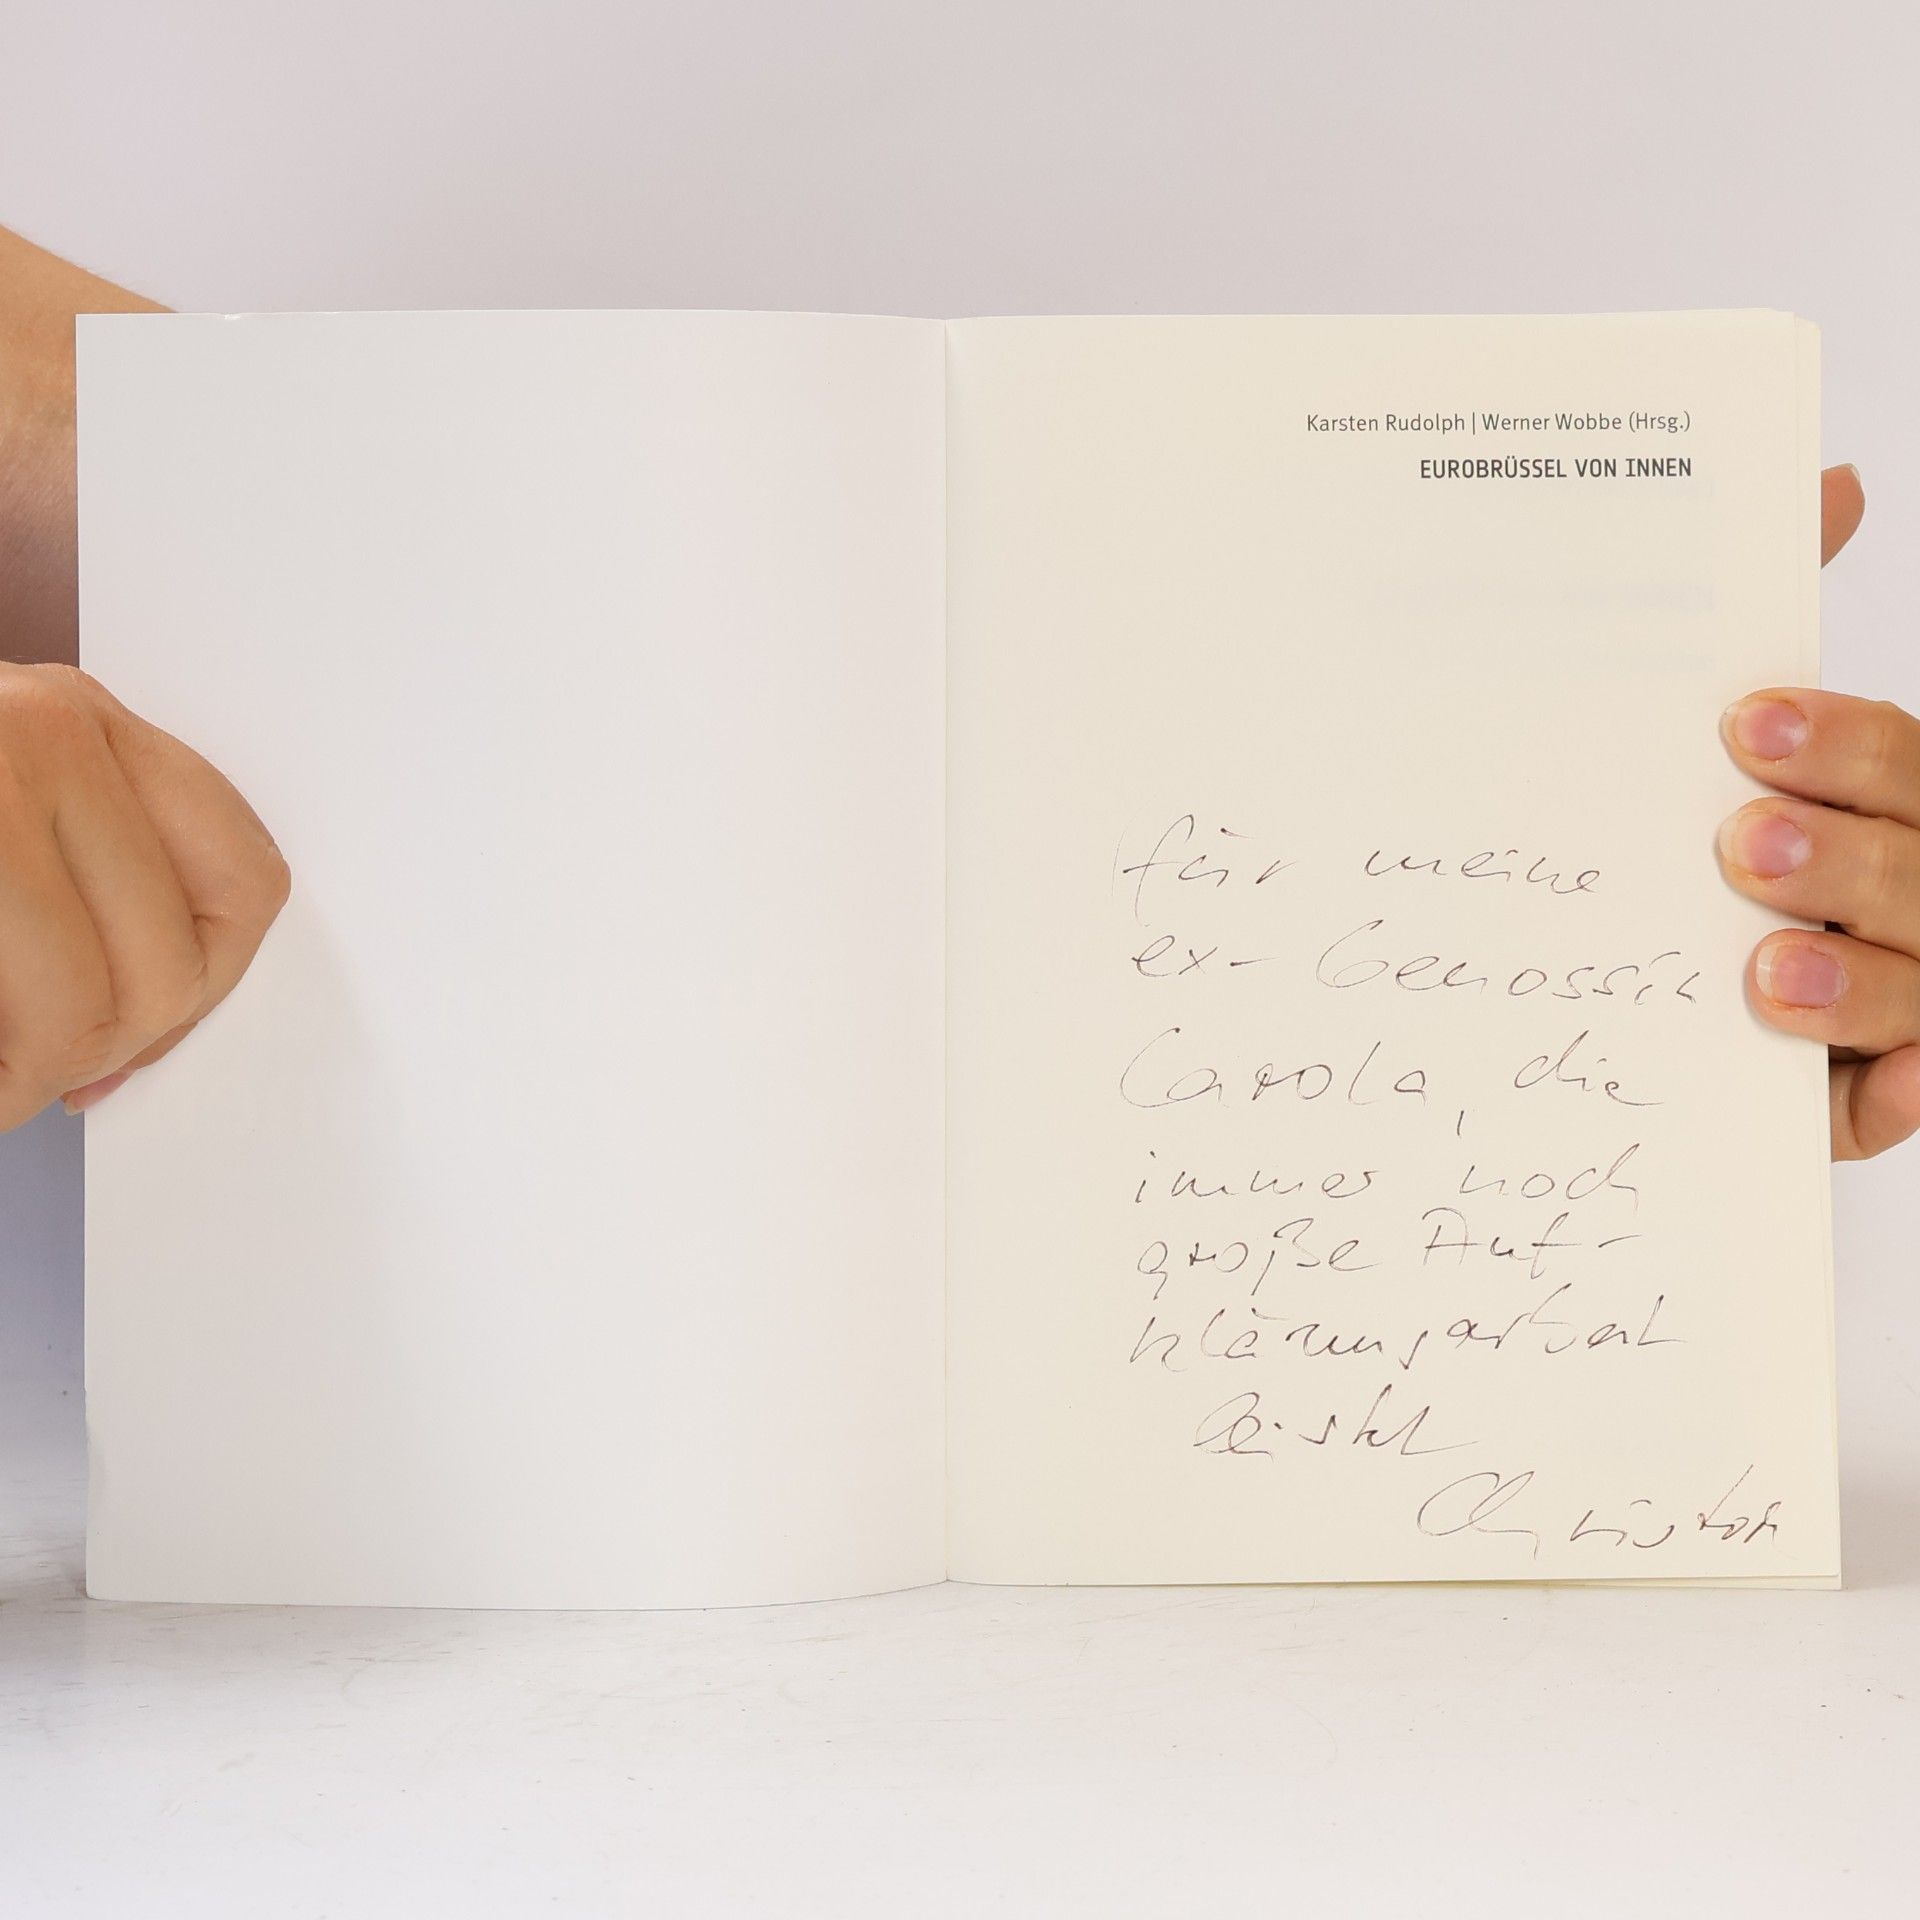 Karsten Rudolph | Werner Wobbe (Hrsg.)
EUROBRÜSSEL VON INNEN
für meine
ex- Genossin
Carola, die
immer noch
große Auf-
klärungsarbeit
leistet